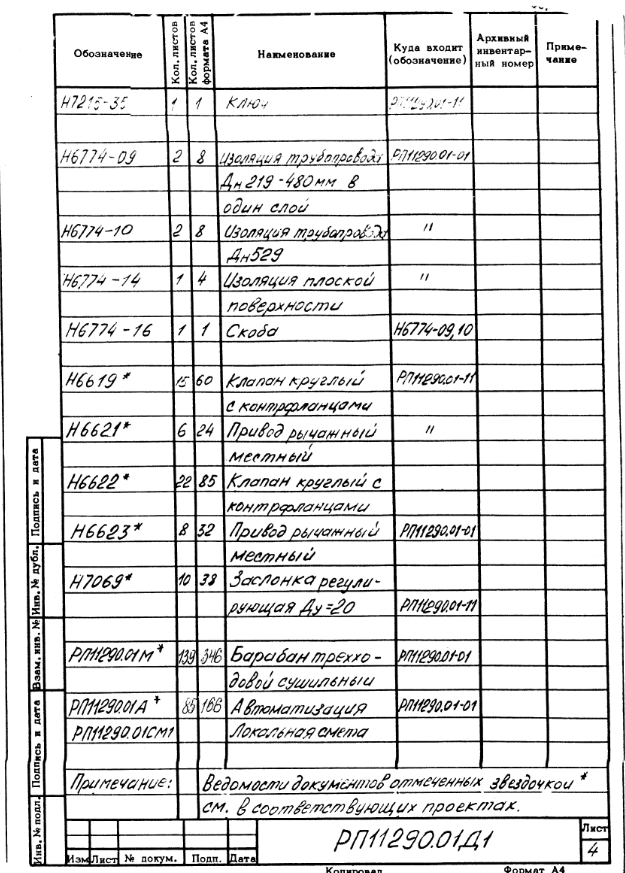 Обозначение Кол. листов Кол. листов формата А4 Наименование Куда входит (обозначение) Архивный инвентарный номер Примечание
Н7215-35 1 1 Ключ РП11290.01-11
Н6774-09 2 8 Изоляция трубопровода РП11290.01-01
Дн 219-480мм в
один слой
Н6774-10 2 8 Изоляция трубопровода "
Дн529
Н6774-14 1 4 Изоляция плоской "
поверхности
Н6774-16 1 1 Скоба Н6774-09,10
Н6619* 15 60 Клапан круглый РП11290.01-11
с контрфланцами
Н6621* 6 24 Привод рычажный "
местный
Н6622* 22 85 Клапан круглый с
контрфланцами
Н6623* 8 32 Привод рычажный РП11290.01-01
местный
Н7069* 10 38 Заслонка регули-
рующая Ду=20 РП11290.01-11
РП11290.01М* 139 346 Барабан треххо- РП11290.01-01
довой сушильный
РП11290.01А* 85 166 Автоматизация РП11290.01-01
РП11290.01СМ1 Локальная смета
Примечание: Ведомости документов отмеченных звездочкой*
см. в соответствующих проектах.
Подпись и дата
Инв. № дубл.
Взам. инв. №
Подпись и дата
Инв. № подл.
Изм Лист № докум. Подп. Дата
РП11290.01Д1
Лист
4
Копировал Формат А4